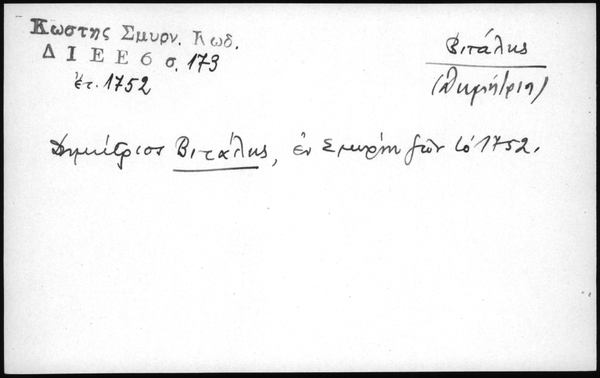 Κωστης Σμυρν. Κωδ.
Δ Ι Ε Ε 6 σ. 173
ἔτ. 1752
Βιτάλης
(Δημήτριος)
Δημήτριος Βιτάλης, ἐν Σμύρνῃ ζῶν τὸ 1752.